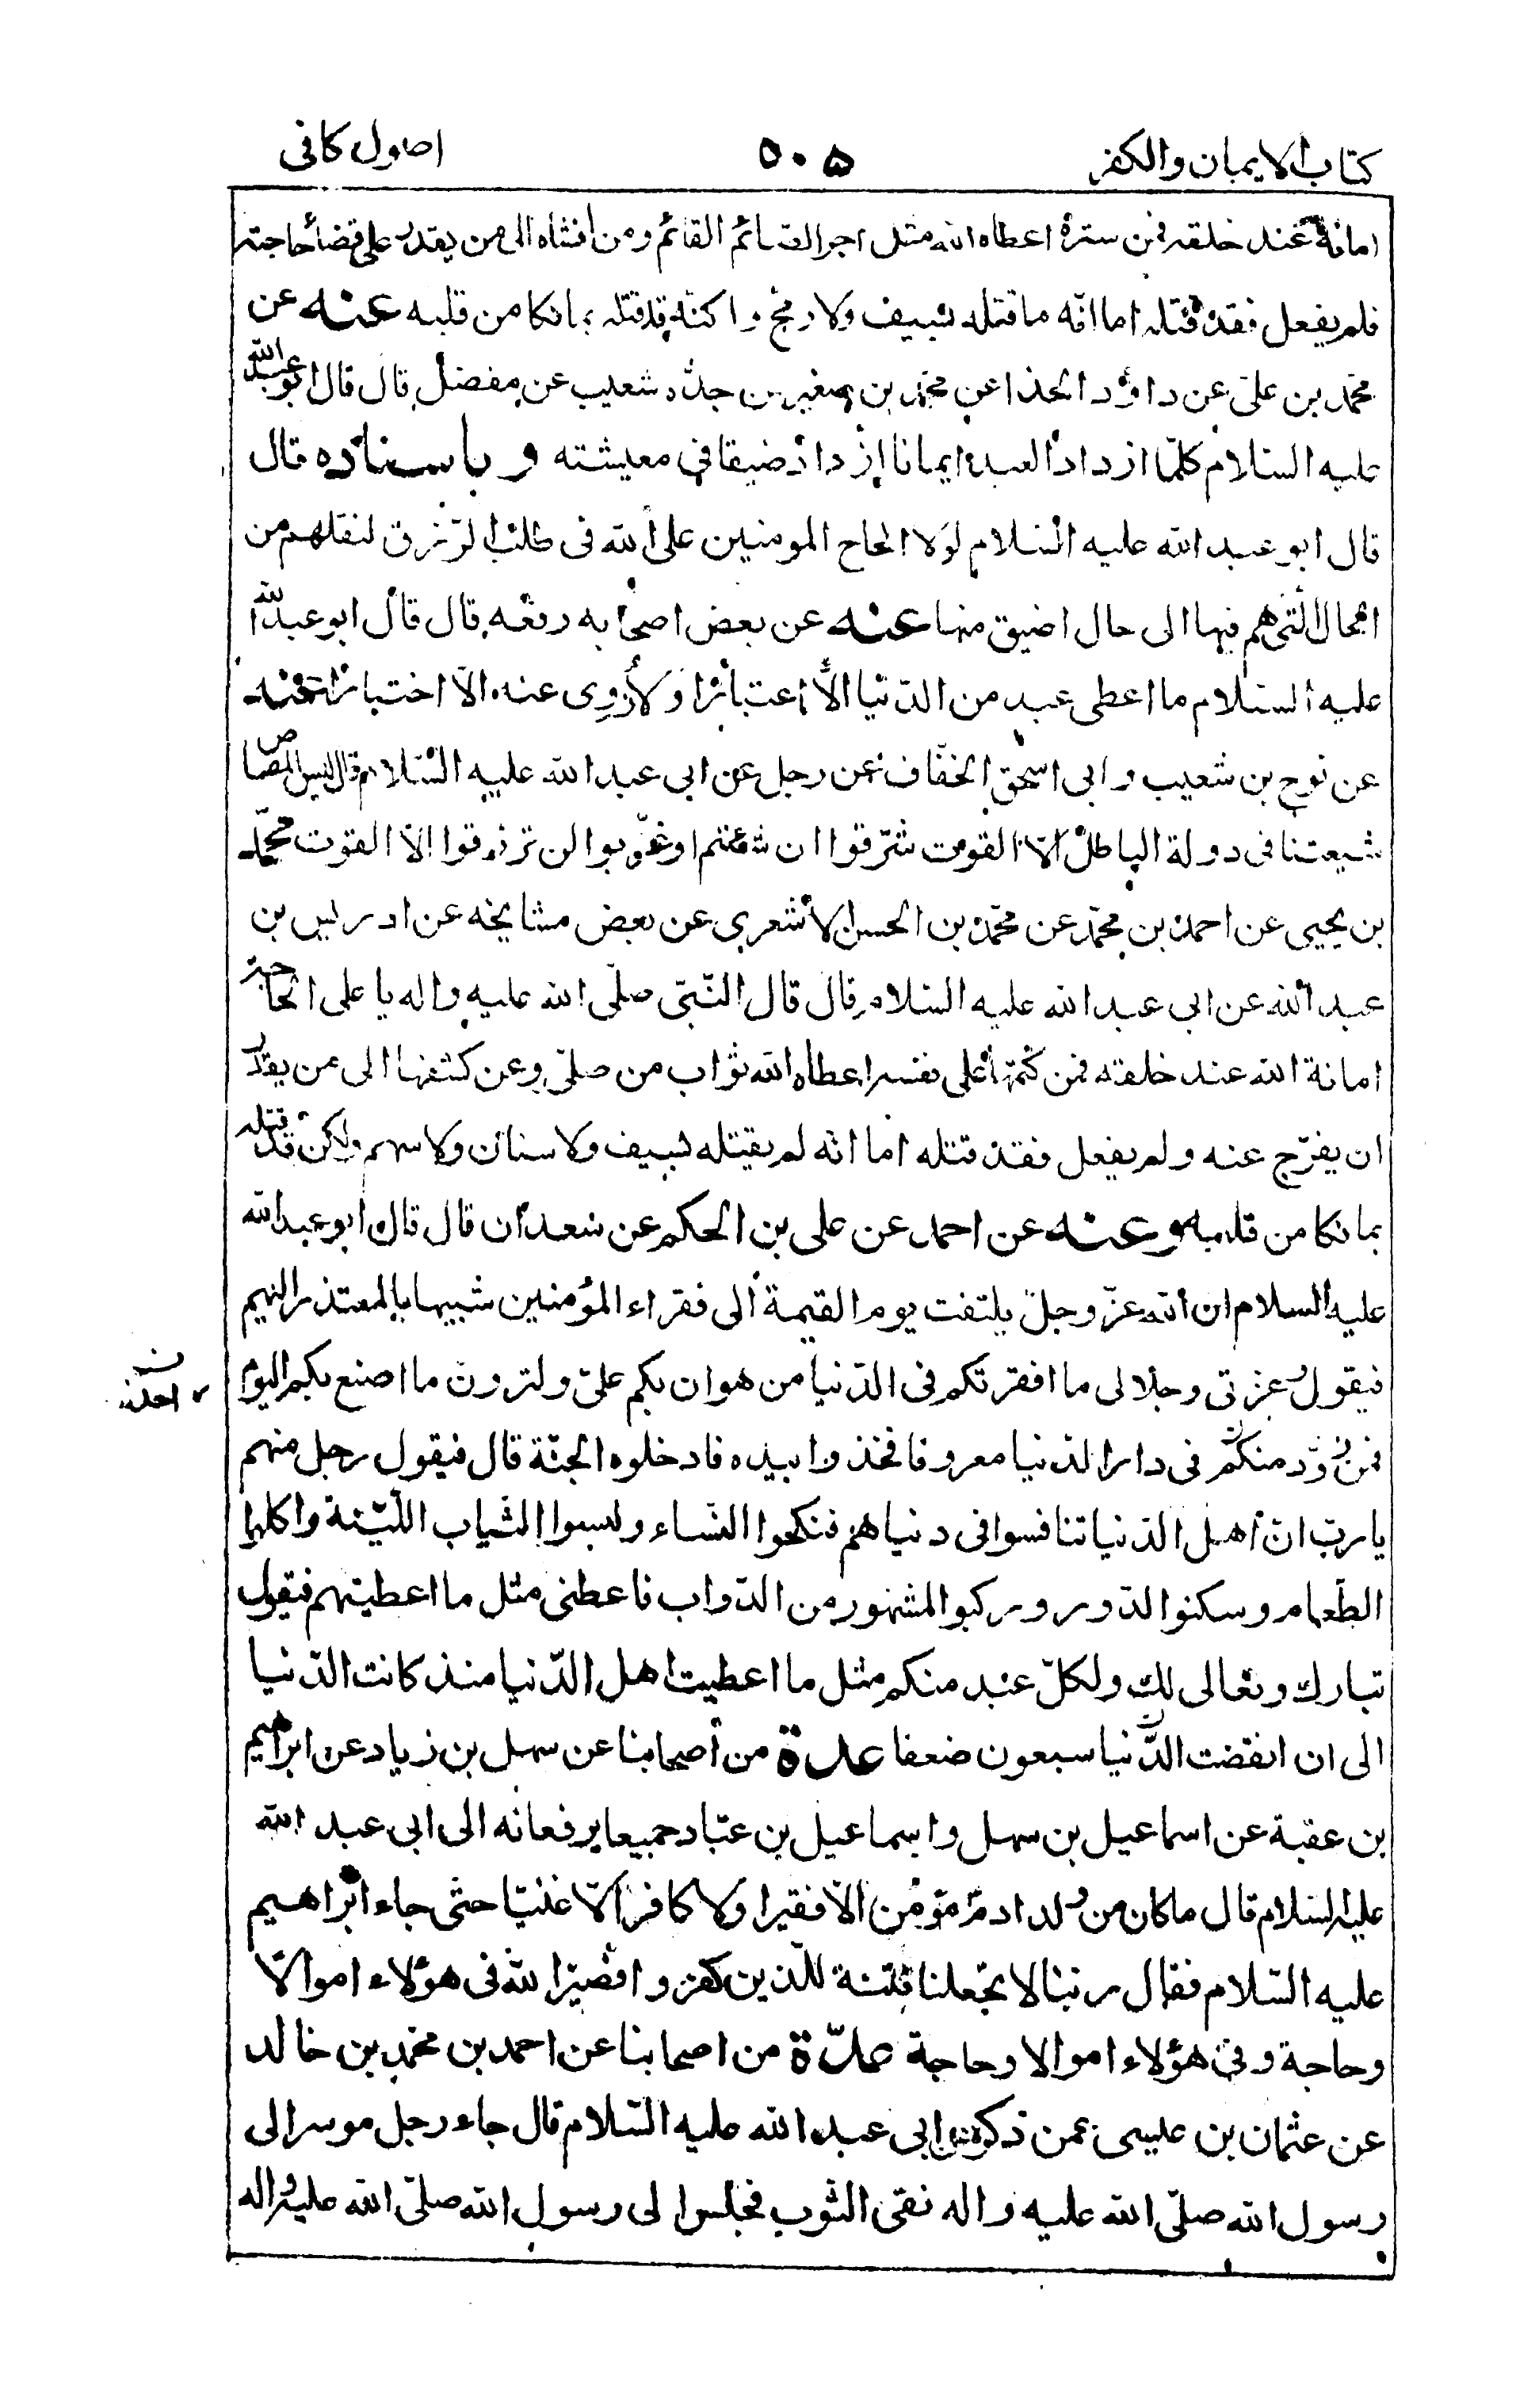 كتاب الايمان والكفر ٥٠٥ اصول كافى
امانة عند خلقه فمن ستره اعطاه الله مثل اجر الصائم القائم ومن افشاه الى من يقدر على قضاء حاجته
فلم يفعل فقد قتله اما انّه ما قتله بسيف ولا رمح ولكنّه قتله بما نكا من قلبه عنه عن
محمّد بن علىّ عن داؤد الحذا عن محمّد بن صغير عن جدّه شعيب عن مفضل قال قال ابو عبد الله
عليه السّلام كلّما ازداد العبد ايمانا ازداد ضيقا فى معيشته و باسناده قال
قال ابو عبد الله عليه السّلام لولا الحاح المومنين على الله فى طلب الرّزق لنقلهم من
الحال الّتى هم فيها الى حال اضيق منها عنه عن بعض اصحابه رفعه قال قال ابو عبد الله
عليه السّلام ما اعطى عبد من الدّنيا الّا اعتبارا ولا زوى عنه الّا اختبارا عنه
عن نوح بن شعيب وابى اسحٰق الخفّاف عن رجل عن ابى عبد الله عليه السّلام قال ليس لمصاص
شيعتنا فى دولة الباطل الّا القوت شرّقوا ان شئتم او غرّبوا لن ترزقوا الّا القوت محمّد
بن يحيى عن احمد بن محمّد عن محمّد بن الحسن الاشعرى عن بعض مشايخه عن ادريس بن
عبد الله عن ابى عبد الله عليه السّلام قال قال النّبىّ صلّى الله عليه واله يا على الحاجة
امانة الله عند خلقه فمن كتمها على نفسه اعطاه الله ثواب من صلّى وعن كشفها الى من يقدر
ان يفرّج عنه ولم يفعل فقد قتله اما انّه لم يقتله بسيف ولا سنان ولا سهم ولكن قد قتله
بما نكا من قلبه وعنه عن احمد عن على بن الحكم عن سعدان قال قال ابو عبد الله
عليه السلام ان الله عزّ وجلّ يلتفت يوم القيمة الى فقراء المؤمنين شبيها بالمعتذر اليهم
فيقول وعزتى وجلالى ما افقرتكم فى الدّنيا من هوان بكم علىّ ولترون ما اصنع بكم اليوم
فمن زوّد منكم فى دار الدّنيا معروفا فخذوا بيده فادخلوه الجنّة قال فيقول رجل منهم
يا ربّ انّ اهل الدّنيا تنافسوا فى دنياهم فنكحوا النّساء ولبسوا الثّياب اللّيّنة واكلوا
الطّعام وسكنوا الدّور وركبوا المشهور من الدّواب فاعطنى مثل ما اعطيتهم فيقول
تبارك وتعالى لك ولكلّ عبد منكم مثل ما اعطيت اهل الدّنيا منذ كانت الدّنيا
الى ان انقضت الدّنيا سبعون ضعفا عدة من أصحابنا عن سهل بن زياد عن ابراهيم
بن عقبة عن اسماعيل بن سهل واسماعيل بن عبّاد جميعا يرفعانه الى ابى عبد الله
عليه السّلام قال ما كان من ولد ادم مؤمن الّا فقيرا ولا كافر الّا غنيّا حتّى جاء ابراهيم
عليه السّلام فقال ربّنا لا تجعلنا فتنة للّذين كفروا فصيّر الله فى هؤلاء اموالا
وحاجة وفى هؤلاء اموالا وحاجة عدّة من اصحابنا عن احمد بن محمّد بن خالد
عن عثمان بن عيسى عمن ذكره عن ابى عبد الله عليه السّلام قال جاء رجل موسر الى
رسول الله صلّى الله عليه واله نقى الثّوب فجلس الى رسول الله صلّى الله عليه واله